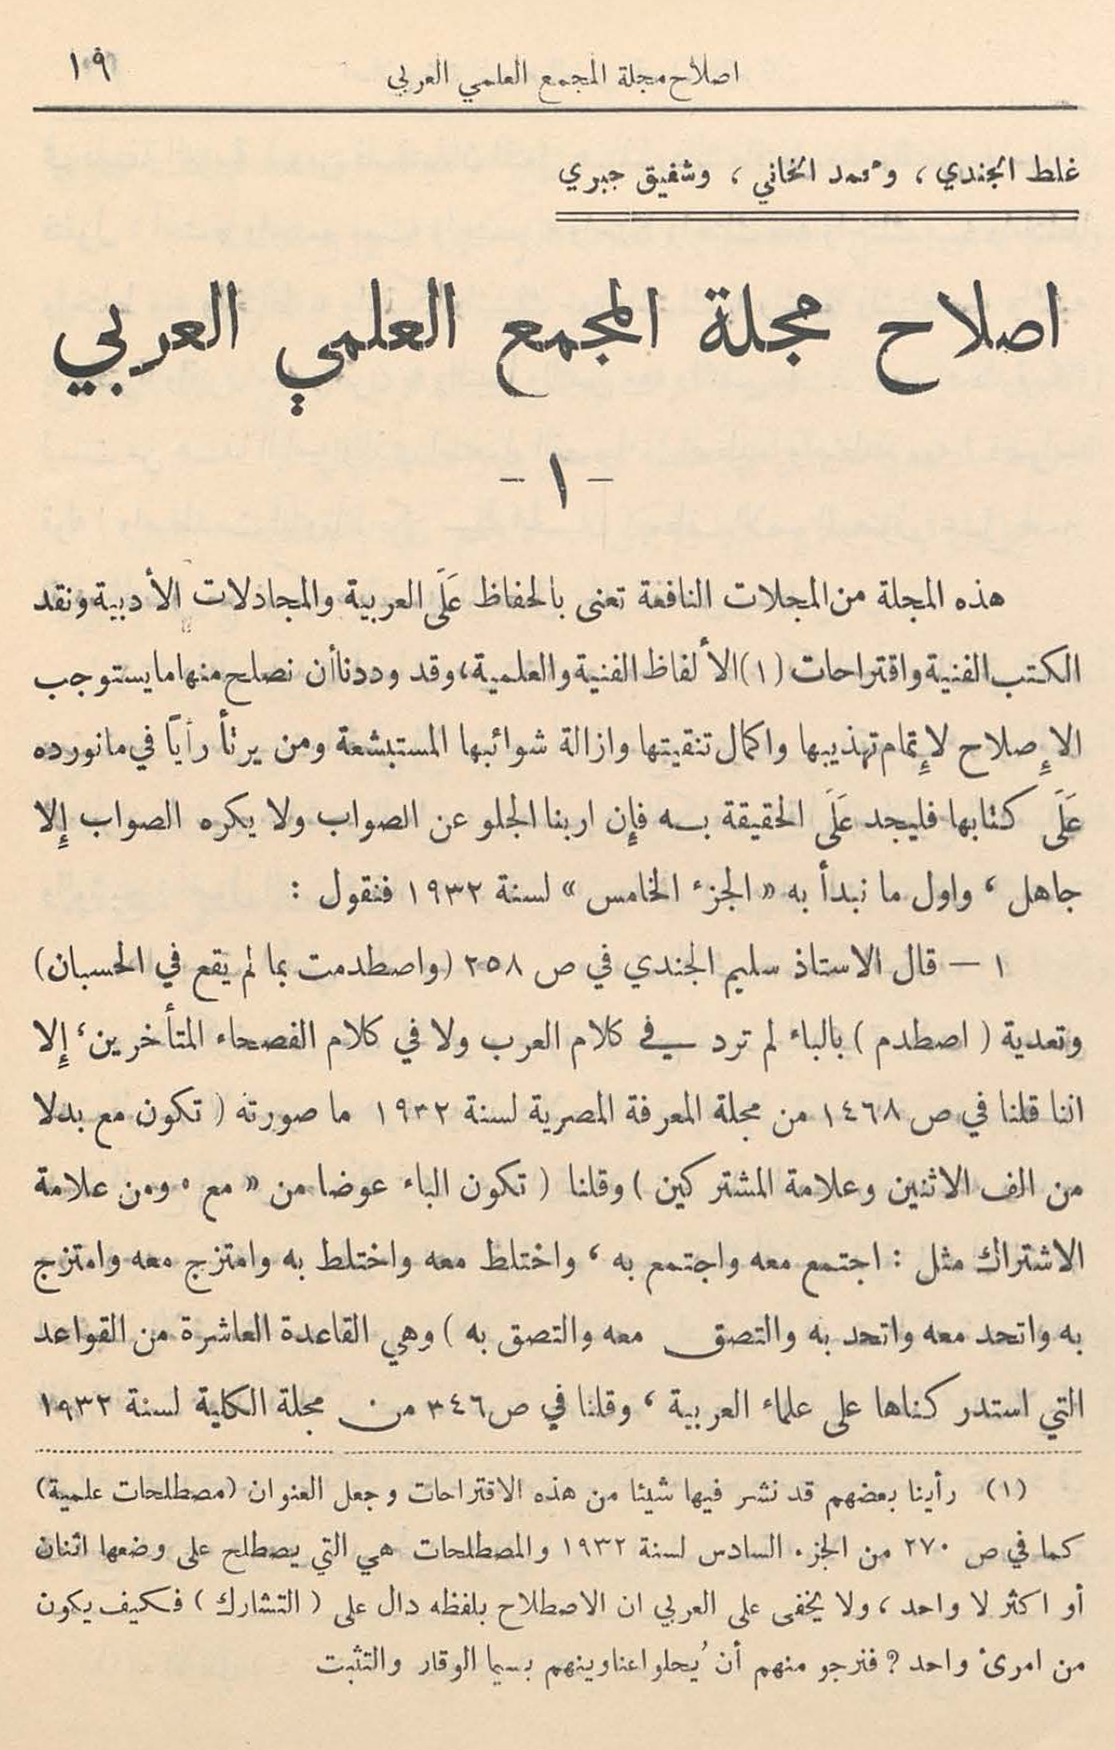 اصلاح مجلة المجمع العلمي العربي ١٩
غلط الجندي ، ومحمد الخاني ، وشفيق جبري
اصلاح مجلة المجمع العلمي العربي
- ١ -
هذه المجلة من المجلات النافعة تعنى بالحفاظ عَلَى العربية والمجادلات الأدبية ونقد
الكتب الفنية واقتراحات (١) الألفاظ الفنية والعلمية ، وقد وددنا أن نصلح منها ما يستوجب
الإصلاح لإتمام تهذيبها واكمال تنقيتها وازالة شوائبها المستبشعة ومن يرتأ رأيًا في ما نورده
عَلَى كتابها فليجد عَلَى الحقيقة به فإن اربنا الجلو عن الصواب ولا يكره الصواب إلا
جاهل ، واول ما نبدأ به « الجزء الخامس » لسنة ١٩٣٢ فنقول :
١ — قال الاستاذ سليم الجندي في ص ٢٥٨ (واصطدمت بما لم يقع في الحسبان)
وتعدية ( اصطدم ) بالباء لم ترد في كلام العرب ولا في كلام الفصحاء المتأخرين ، إلا
اننا قلنا في ص ١٤٦٨ من مجلة المعرفة المصرية لسنة ١٩٣٢ ما صورته ( تكون مع بدلا
من الف الاثنين وعلامة المشتركين ) وقلنا ( تكون الباء عوضا من « مع » ومن علامة
الاشتراك مثل : اجتمع معه واجتمع به ، واختلط معه واختلط به وامتزج معه وامتزج
به واتحد معه واتحد به والتصق معه والتصق به ) وهي القاعدة العاشرة من القواعد
التي استدركناها على علماء العربية ، وقلنا في ص ٣٤٦ من مجلة الكلية لسنة ١٩٣٢
(١) رأينا بعضهم قد نشر فيها شيئا من هذه الاقتراحات وجعل العنوان (مصطلحات علمية)
كما في ص ٢٧٠ من الجزء السادس لسنة ١٩٣٢ والمصطلحات هي التي يصطلح على وضعها اثنان
أو اكثر لا واحد ، ولا يخفى على العربي ان الاصطلاح بلفظه دال على ( التشارك ) فكيف يكون
من امرئ واحد ؟ فنرجو منهم أن يُحلوا عناوينهم بسيما الوقار والتثبت